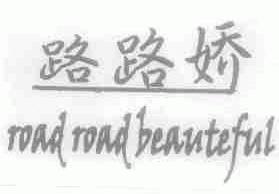 路路娇
road road beauteful